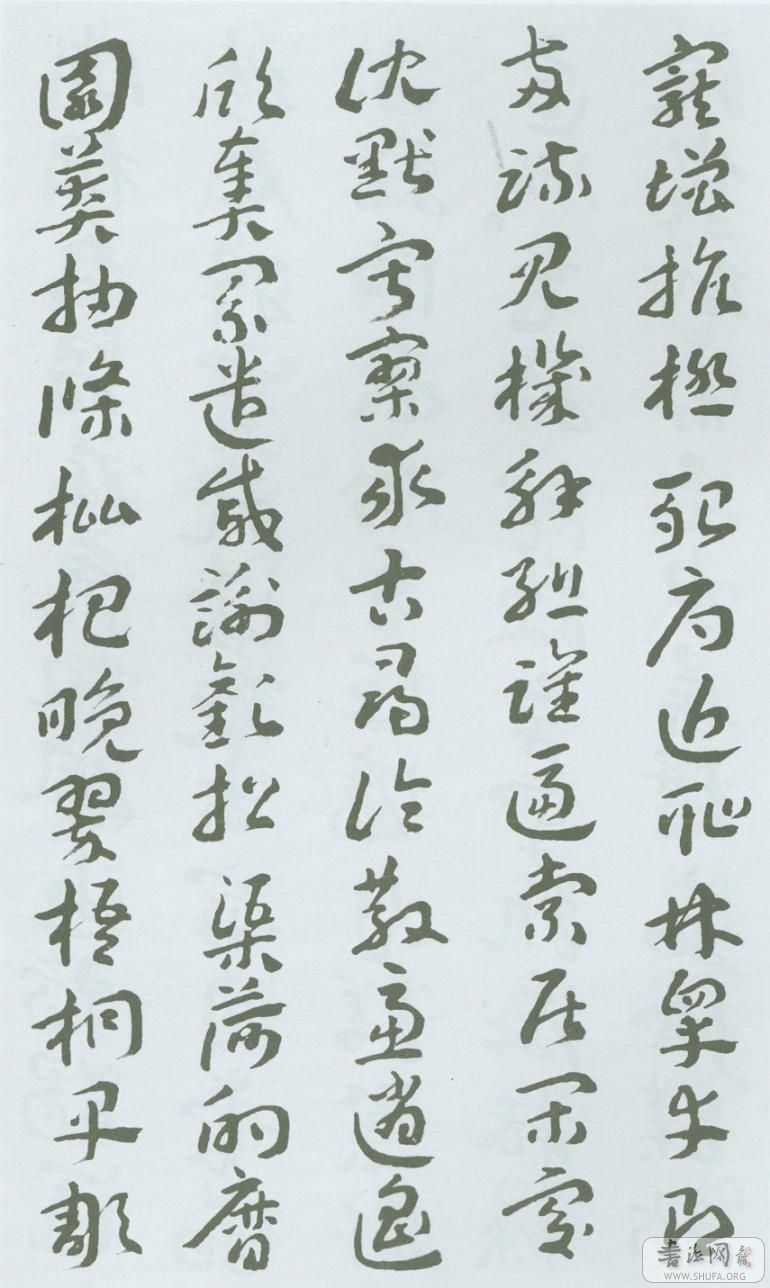 寵增抗極殆辱近耻林皋幸即
兩疏見機解組誰逼索居閑處
沈默寂寥求古尋論散慮逍遙
欣奏累遣慼謝歡招渠荷的曆
園莽抽條枇杷晚翠梧桐早彫
書法网
WWW.SHUFA.ORG